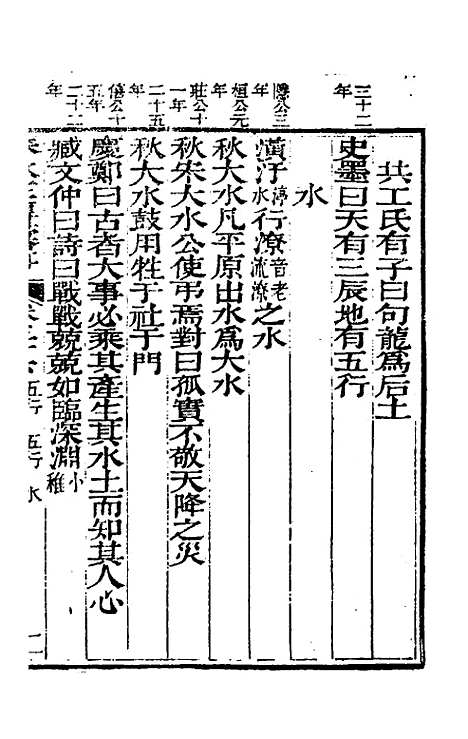 共工氏有子曰句龍爲后土
三十二年
史墨曰天有三辰地有五行
水
隱公三年
潢汙停水行潦音老流潦之水
桓公元年
秋大水凡平原出水爲大水
莊公十一年
秋宋大水公使弔焉對曰孤實不敬天降之災
二十五年
秋大水鼓用牲于社于門
僖公十五年
慶鄭曰古者大事必乘其產生其水土而知其人心
二十二年
臧文仲曰詩曰戰戰兢兢如臨深淵小稚
五行 五行 水